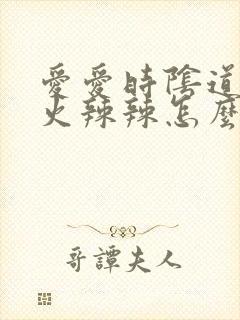 愛愛時陰道
火辣辣怎麼
哥譚夫人